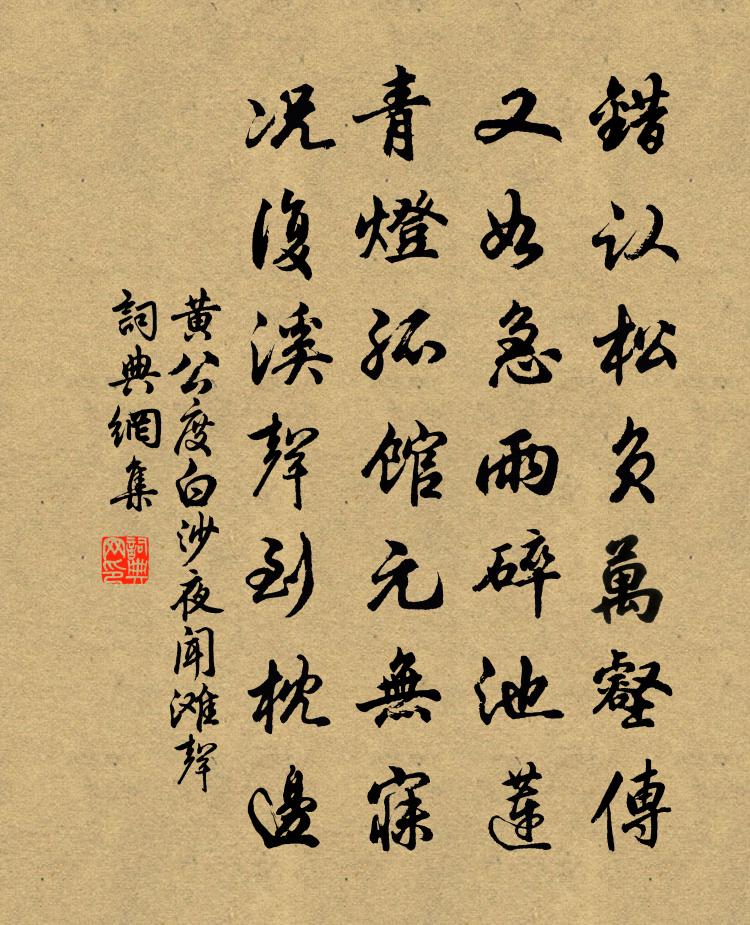 錯认松負萬壑傳
又如急雨碎池蓮
青燈孤館元無寐
况復溪聲到枕邊
黄公度白沙夜聞滩聲
詞典網集
詞典网印